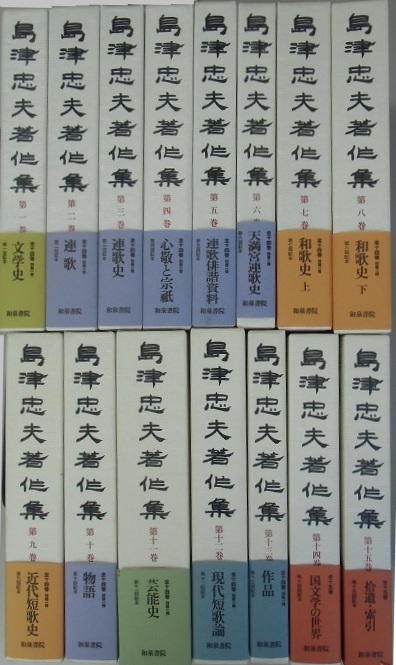 島津忠夫著作集
第一巻
文学史
和泉書院
島津忠夫著作集
第二巻
連歌
和泉書院
島津忠夫著作集
第三巻
連歌史
和泉書院
島津忠夫著作集
第四巻
心敬と宗祇
和泉書院
島津忠夫著作集
第五巻
連歌俳諧資料
和泉書院
島津忠夫著作集
第六巻
天満宮連歌史
和泉書院
島津忠夫著作集
第七巻
和歌史 上
和泉書院
島津忠夫著作集
第八巻
和歌史 下
和泉書院
島津忠夫著作集
第九巻
近代短歌史
和泉書院
島津忠夫著作集
第十巻
物語
和泉書院
島津忠夫著作集
第十一巻
芸能史
和泉書院
島津忠夫著作集
第十二巻
現代短歌論
和泉書院
島津忠夫著作集
第十三巻
作品
和泉書院
島津忠夫著作集
第十四巻
国文学の世界
和泉書院
島津忠夫著作集
第十五巻
拾遺・索引
和泉書院